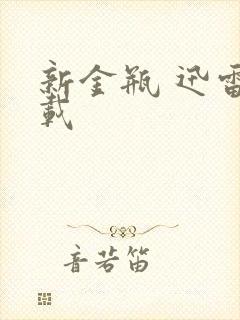 新金瓶 迅雷
载
音若笛